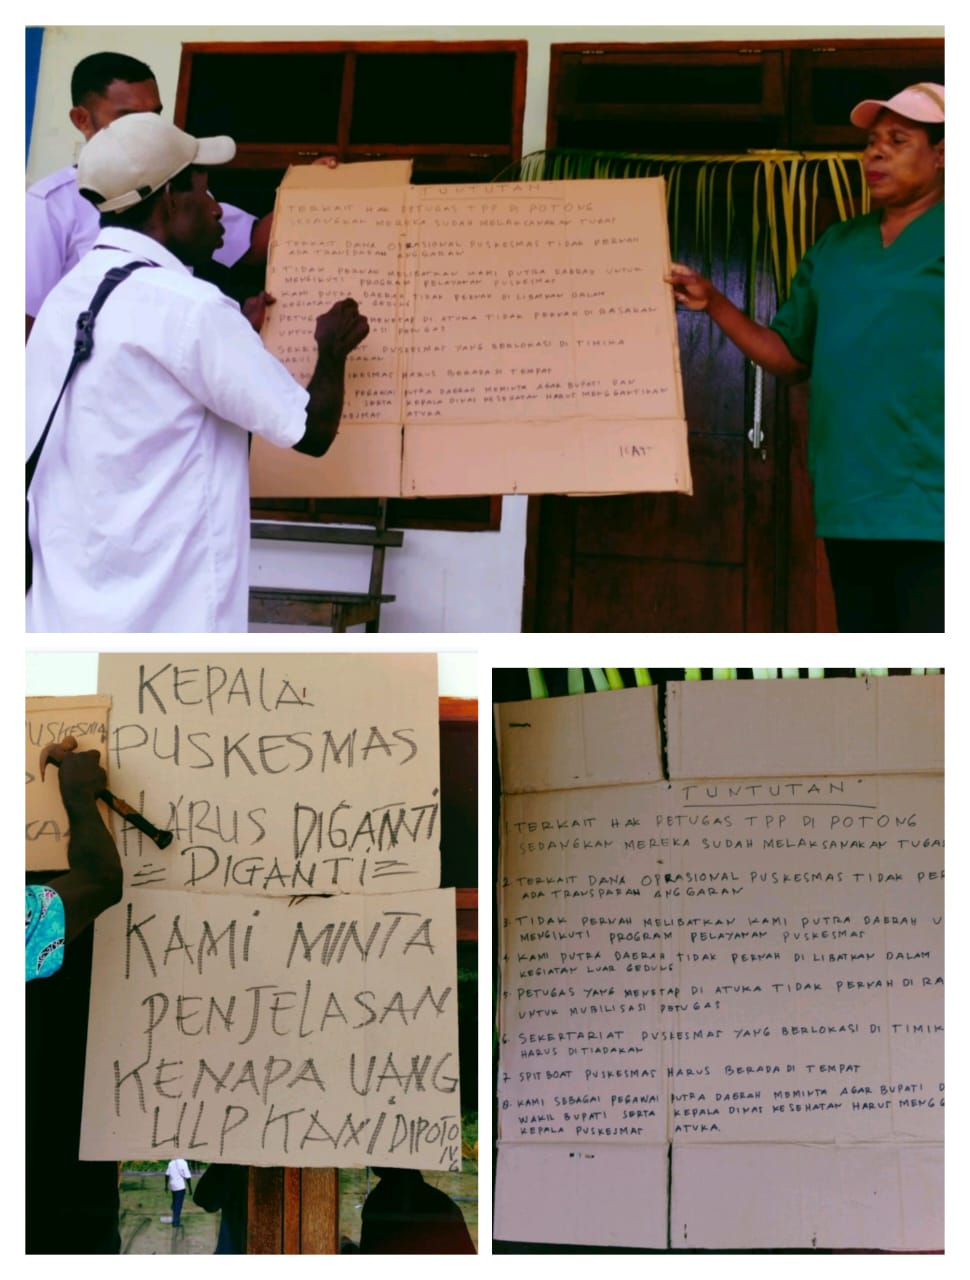 "TUNTUTAN"
TERKAIT HAK PETUGAS TPP DI POTONG
SEDANGKAN MEREKA SUDAH MELAKSANAKAN TUGAS
2. TERKAIT DANA OPRASIONAL PUSKESMAS TIDAK PERNAH
ADA TRANSPARAN ANGGARAN
3 TIDAK PERNAH MELIBATKAN KAMI PUTRA DAERAH UNTUK
MENGIKUTI PROGRAM PELAYANAN PUSKESMAS
KAMI PUTRA DAERAH TIDAK PERNAH DI LIBATKAN DALAM
KEGIATAN GEDUNG
PETUG MENETAP DI ATUKA TIDAK PERNAH DI RASAKAN
UNTUK ASI PETUGAS
SEKER AT PUSKESMAS YANG BERLOKASI DI TIMIKA
HARUS ADAKAN
BO SKESMAS HARUS BERADA DI TEMPAT
PEGAWAI PUTRA DAERAH MEMINTA AGAR BUPATI DAN
I SERTA KEPALA DINAS KESEHATAN HARUS MENGGANTIKAN
KESMAS ATUKA.
KEPALA
PUSKESMAS
HARUS DIGANTI
= DIGANTI =
KAMI MINTA
PENJELASAN
KENAPA UANG
ULP KAMI DIPOTO
N
G
USKESMA
KA
"TUNTUTAN"
1 TERKAIT HAK PETUGAS TPP DI POTONG
SEDANGKAN MEREKA SUDAH MELAKSANAKAN TUGAS
2. TERKAIT DANA OPRASIONAL PUSKESMAS TIDAK PER
ADA TRANSPARAN ANGGARAN
3. TIDAK PERNAH MELIBATKAN KAMI PUTRA DAERAH U
MENGIKUTI PROGRAM PELAYANAN PUSKESMAS
4 KAMI PUTRA DAERAH TIDAK PERNAH DI LIBATKAN DALAM
KEGIATAN LUAR GEDUNG
5. PETUGAS YANG MENETAP DI ATUKA TIDAK PERNAH DI RA
UNTUK MUBILISASI PETUGAS
6. SEKERTARIAT PUSKESMAS YANG BERLOKASI DI TIMIK
HARUS DITIADAKAN
7 SPITBOAT PUSKESMAS HARUS BERADA DI TEMPAT
8. KAMI SEBAGAI PEGAWAI PUTRA DAERAH MEMINTA AGAR BUPATI D
WAKIL BUPATI SERTA KEPALA DINAS KESEHATAN HARUS MENGG
KEPALA PUSKESMAS ATUKA.